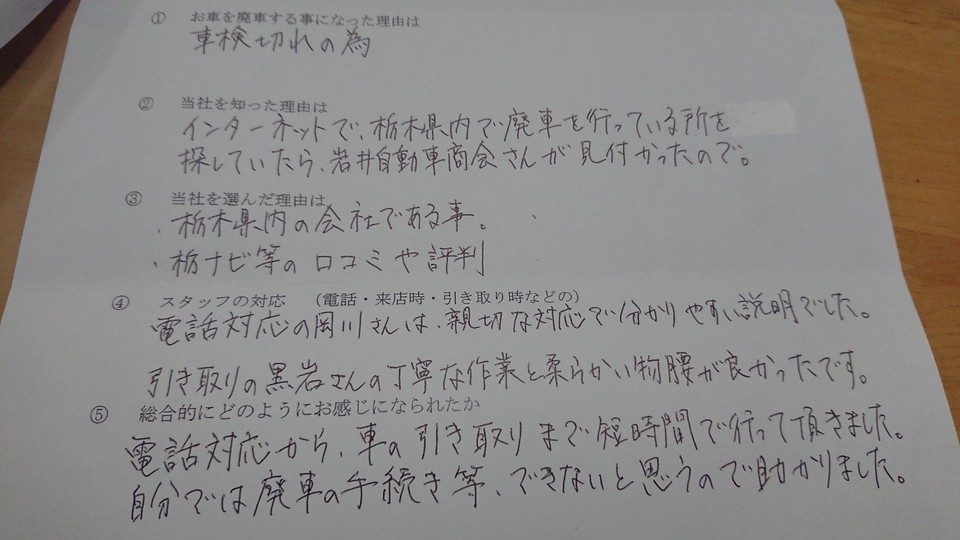 ① お車を廃車する事になった理由は
車検切れの為
② 当社を知った理由は
インターネットで、栃木県内で廃車を行っている所を
探していたら、岩井自動車商会さんが見付かったので。
③ 当社を選んだ理由は
・栃木県内の会社である事。
・栃ナビ等の口コミや評判
④ スタッフの対応 （電話・来店時・引き取り時などの）
電話対応の岡川さんは、親切な対応で分かりやすい説明でした。
引き取りの黒岩さんの丁寧な作業と柔らかい物腰が良かったです。
⑤ 総合的にどのようにお感じになられたか
電話対応から、車の引き取りまで短時間で行って頂きました。
自分では廃車の手続き等、できないと思うので助かりました。